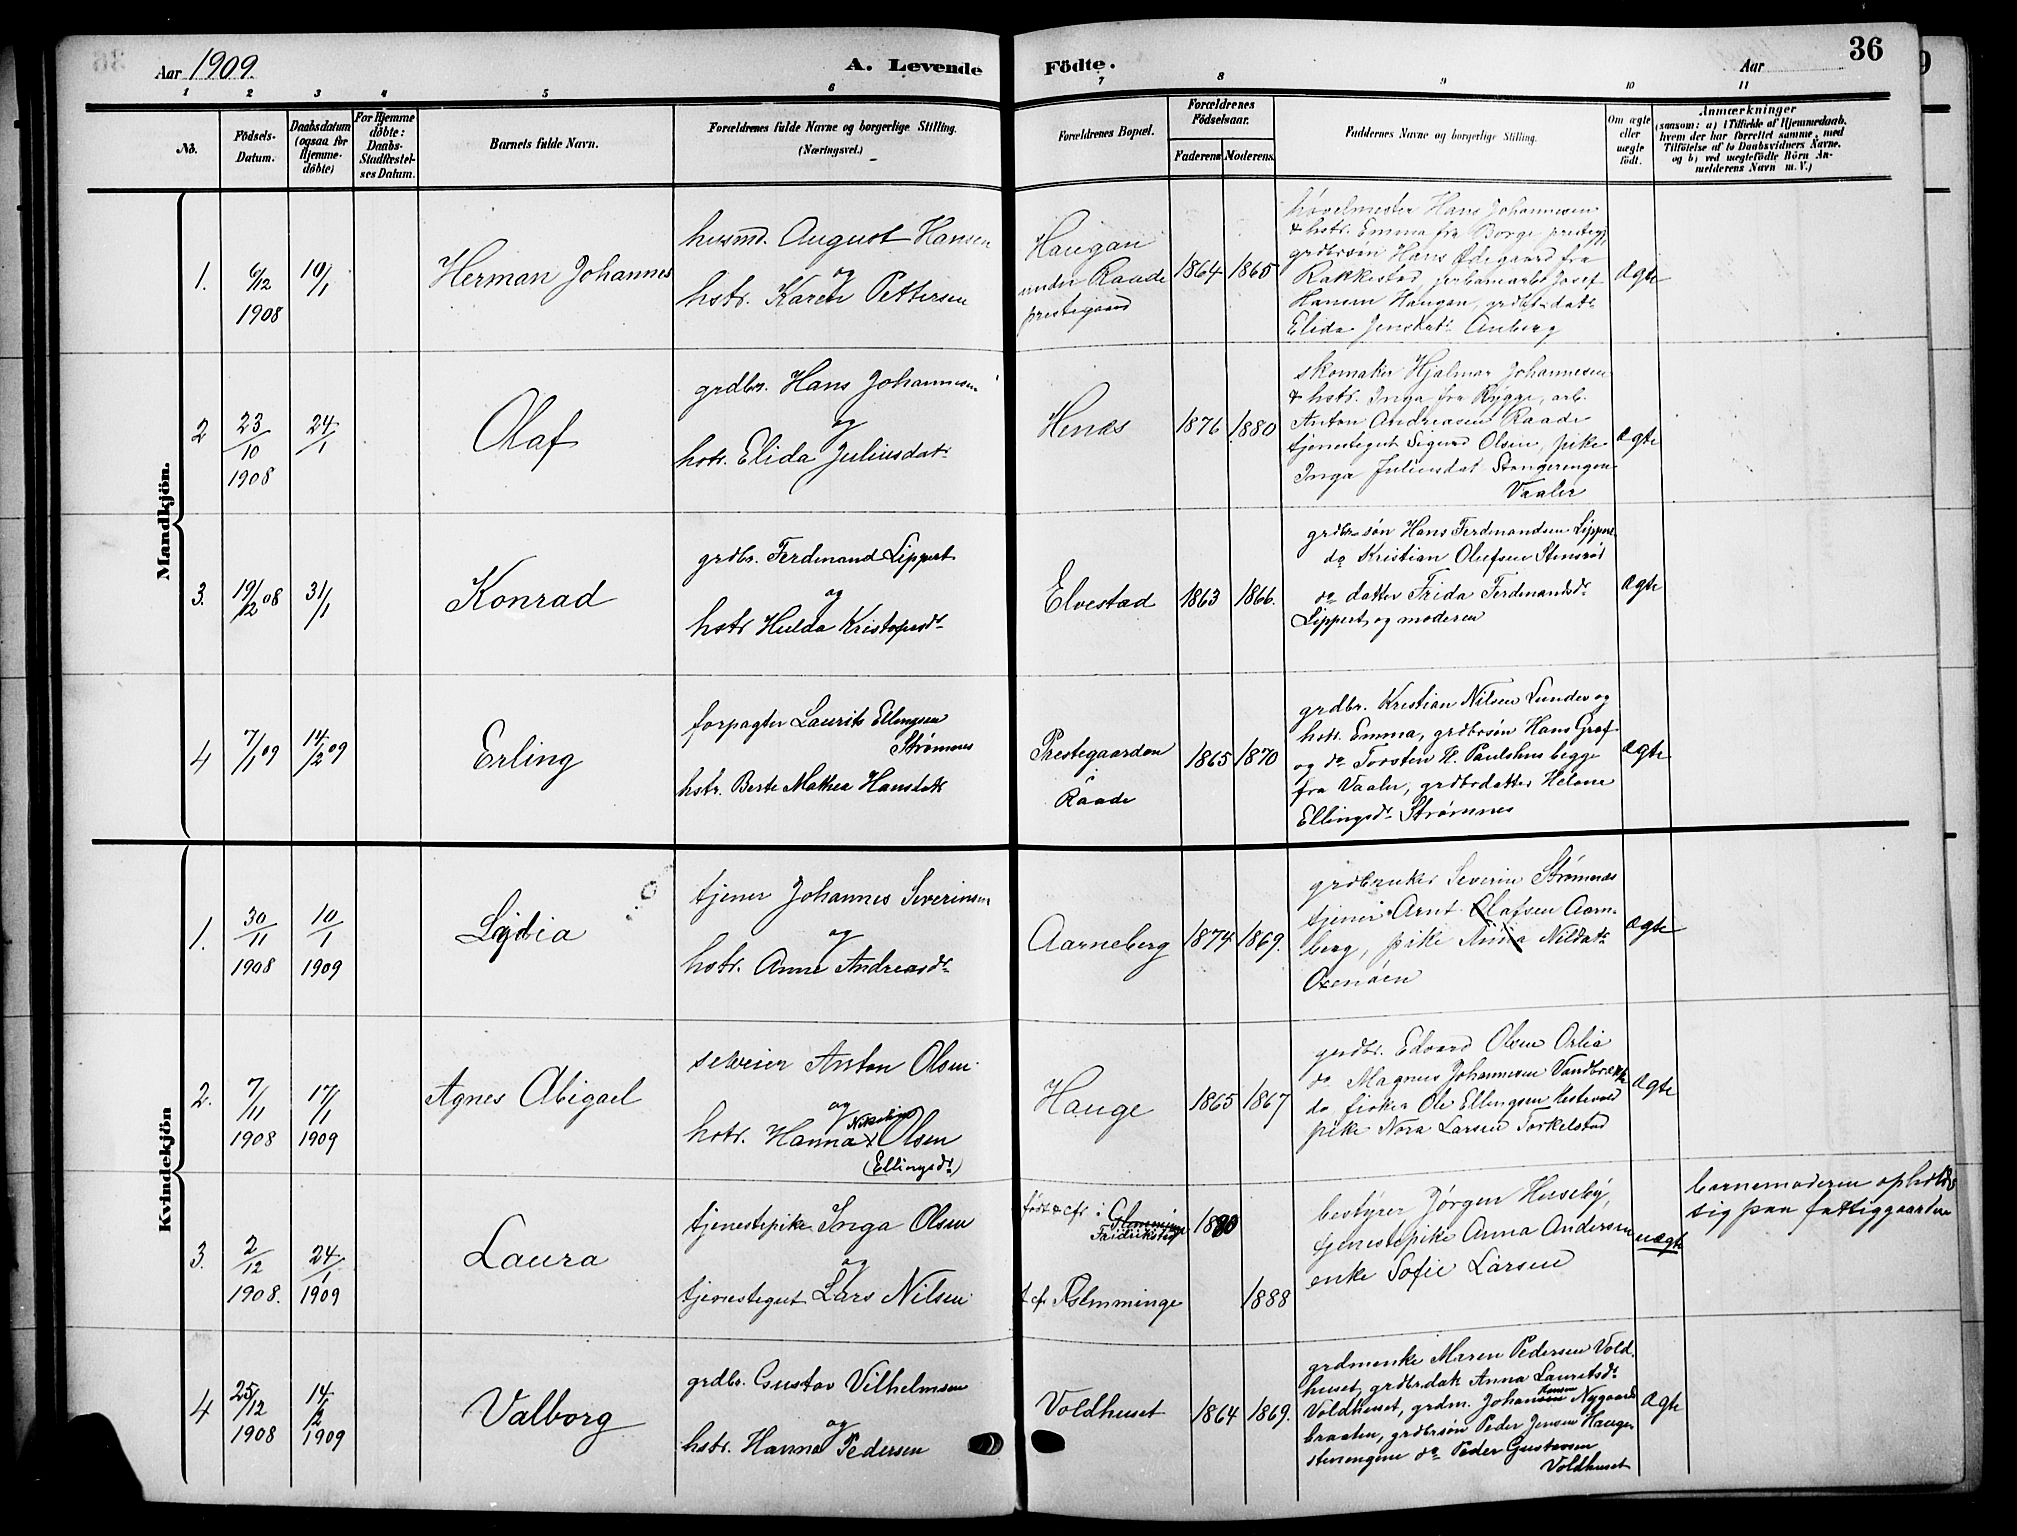 Aar 1909. A. Levende Födte. Aar 36
1 2 3 4 5 6 7 8 9 10 11
No.
Födsels-
Datum.
Daabsdatum
(ogsaa for
Hjemme-
døbte)
For Hjemme
døbte:
Daabs-
Stadfæstel-
ses Datum.
Barnets fulde Navn.
Forældrenes fulde Navne og borgerlige Stilling.
(Næringsvei.)
Forældrenes Bopæl.
Forældrenes
Födselsaar.
Faderens Moderens.
Faddernes Navne og borgerlige Stilling.
Om ægte
eller
uægte
födt.
Anmærkninger
(saasom: a) i Tilfælde af Hjemmedaab,
hvem der har forrettet samme, med
Tilföielse af to Daabsvidners Navne.
og b) ved uægtefödte Börn An-
melderens Navn m. V.)
Mandkjön.
1. 6/12 1908 10/1 Herman Johannes
husmd. August Hansen
og
hstr. Karen Pettersen
Haugan
under Raade
prestegaard
1864 1865
høvelmester Hans Johannesen
& hstr. Emma fra Borge prestegj,
grdbrsøn Hans Ødegaard fra
Rakkestad, jernbanearb. Josef
Hansen Haugan, grdbr. datr
Elida Jensdatr
ægte
2 23/10 1908 24/1 Olaf
grdbr. Hans Johannesen
og
hstr. Elida Juliusdatr
Henæs
1876 1880
skomaker Hjalmar Johannesen
& hstr. Inga fra Rygge, arb.
Anton Andreasen Raade
tjenestegut Sigurd Olsen, pike
Inga Juliusdat Stangerengen
Vaaler
ægte
3. 19/12 08 31/1 Konrad
grdbr. Ferdinand Lippert
og
hstr. Hulda Kristofersdr
Elvestad
1863 1866.
grdbrsøn Hans Ferdinandsen Lippert
do Kristian Olufsen Stensrød
do datter Frida Ferdinandsdr
Lippert og moderen
ægte
4 7/1 09 14/2 09 Erling
forpagter Laurits Ellingsen
Strømnes
hstr. Berte Mathea Hansdatr
Prestegaarden
Raade
1865 1870
grdbr. Kristian Nilsen Sundev og
hstr. Emma, grdbrsøn Hans Graf
og do Torsten H. Paulshus begge
fra Vaaler, grdbrdatter Helene
Ellingsdr Strømnes
ægte
Kvindekjön
1. 30/11 1908 10/1 1909 Lydia
tjener Johannes Severinsen
og
hstr. Anne Andreasdr
Aarneberg
1874 1869.
grdbruker Severin Strømnes
tjener Arnt Olafsen Aarn-
berg, pike Anna Nilsdatr
Oxenöen
ægte
2. 7/11 1908 17/1 1909 Agnes Abigael
selveier Anton Olsen
og
hstr. Hanna Olsen
(Ellingsdr)
Hauge
1865 1867
grdbr. Edvard Olsen Orlia
do Magnus Johannesen
do fisker Ole Ellingsen
pike Nora Larsen Torkelstad
ægte
3. 2/12 1908. 24/1 1909 Laura
tjenestepike Inga Olsen
og
tjenestegut Lars Nilsen
født & cfr i Glemminge
Fridrikstad
Glemminge
1888
bestyrer Jørgen Huseby,
tjenestepike Anna Andersen
enke Sofie Larsen
uægte
barnemoderen opholdt
sig paa fattiggaarden
4 25/12 1908 14/2 1909 Valborg
grdbr. Gustav Vilhelmsen
og
hstr. Hanna Pedersen
Voldhuset
1864 1869.
grdmenke Maren Pedersen Vold-
huset, grdbr.dat. Anna Lauritsdr
Voldhuset, grdm. Johan Hansen Nygaards
braaten, grdbrsøn Peder Jensen Hauge-
stenengene do Peder Gustavsen
Voldhuset
ægte